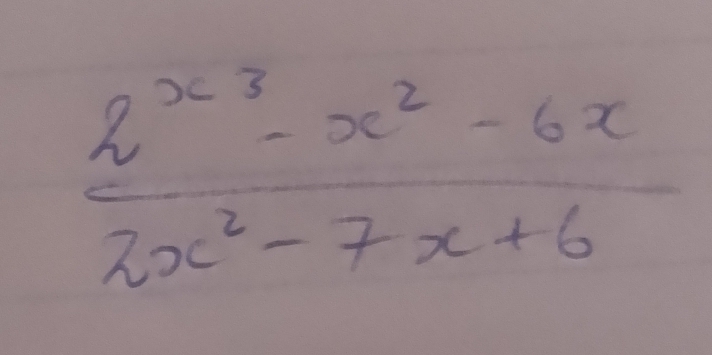 2^{x^3} - x^2 - 6x
2x^2 - 7x + 6